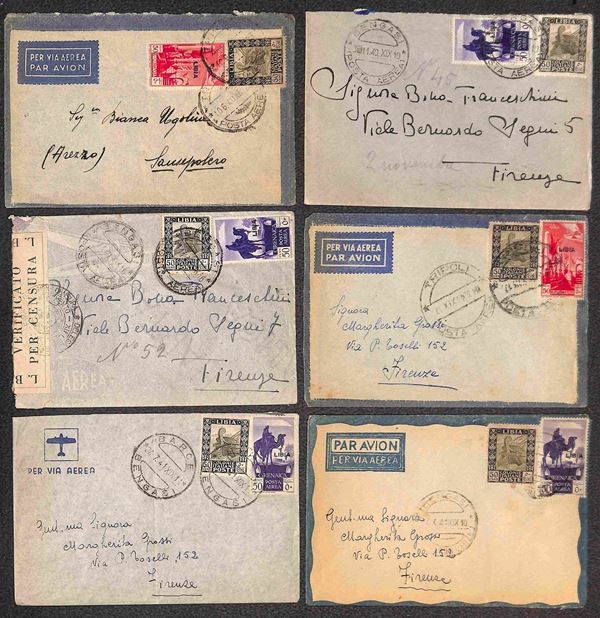 PER VIA AEREA
PAR AVION
LIBIA
LIBIA
50
POSTA AEREA
Sig.na Bianca Ugolini
(Arezzo) Sansepolcro
BENGASI
POSTA AEREA
LIBIA
50
Signora Bona Franceschini
Viale Bernardo Segni 5
Firenze
VERIFICATO
PER CENSURA
BENGASI
LIBIA
LIBIA
50
50
POSTA AEREA
Signora Bona Franceschini
Viale Bernardo Segni 7
N° 52
Firenze
AEREA
PER VIA AEREA
PAR AVION
TRIPOLI
POSTA AEREA
LIBIA
LIBIA
50
Signora
Margherita Grossi
Via P. Toselli 152
Firenze
PER VIA AEREA
BARCE
BENGASI
LIBIA
LIBIA
50
POSTE
CIRENAICA
POSTA
AEREA
50
Gent.ma Signora
Margherita Grossi
Via P. Toselli, 152
Firenze
PAR AVION
PER VIA AEREA
LIBIA
LIBIA
50
POSTE
POSTA
AEREA
50
Gent.ma Signora
Margherita Grossi
Via P. Toselli, 152
Firenze